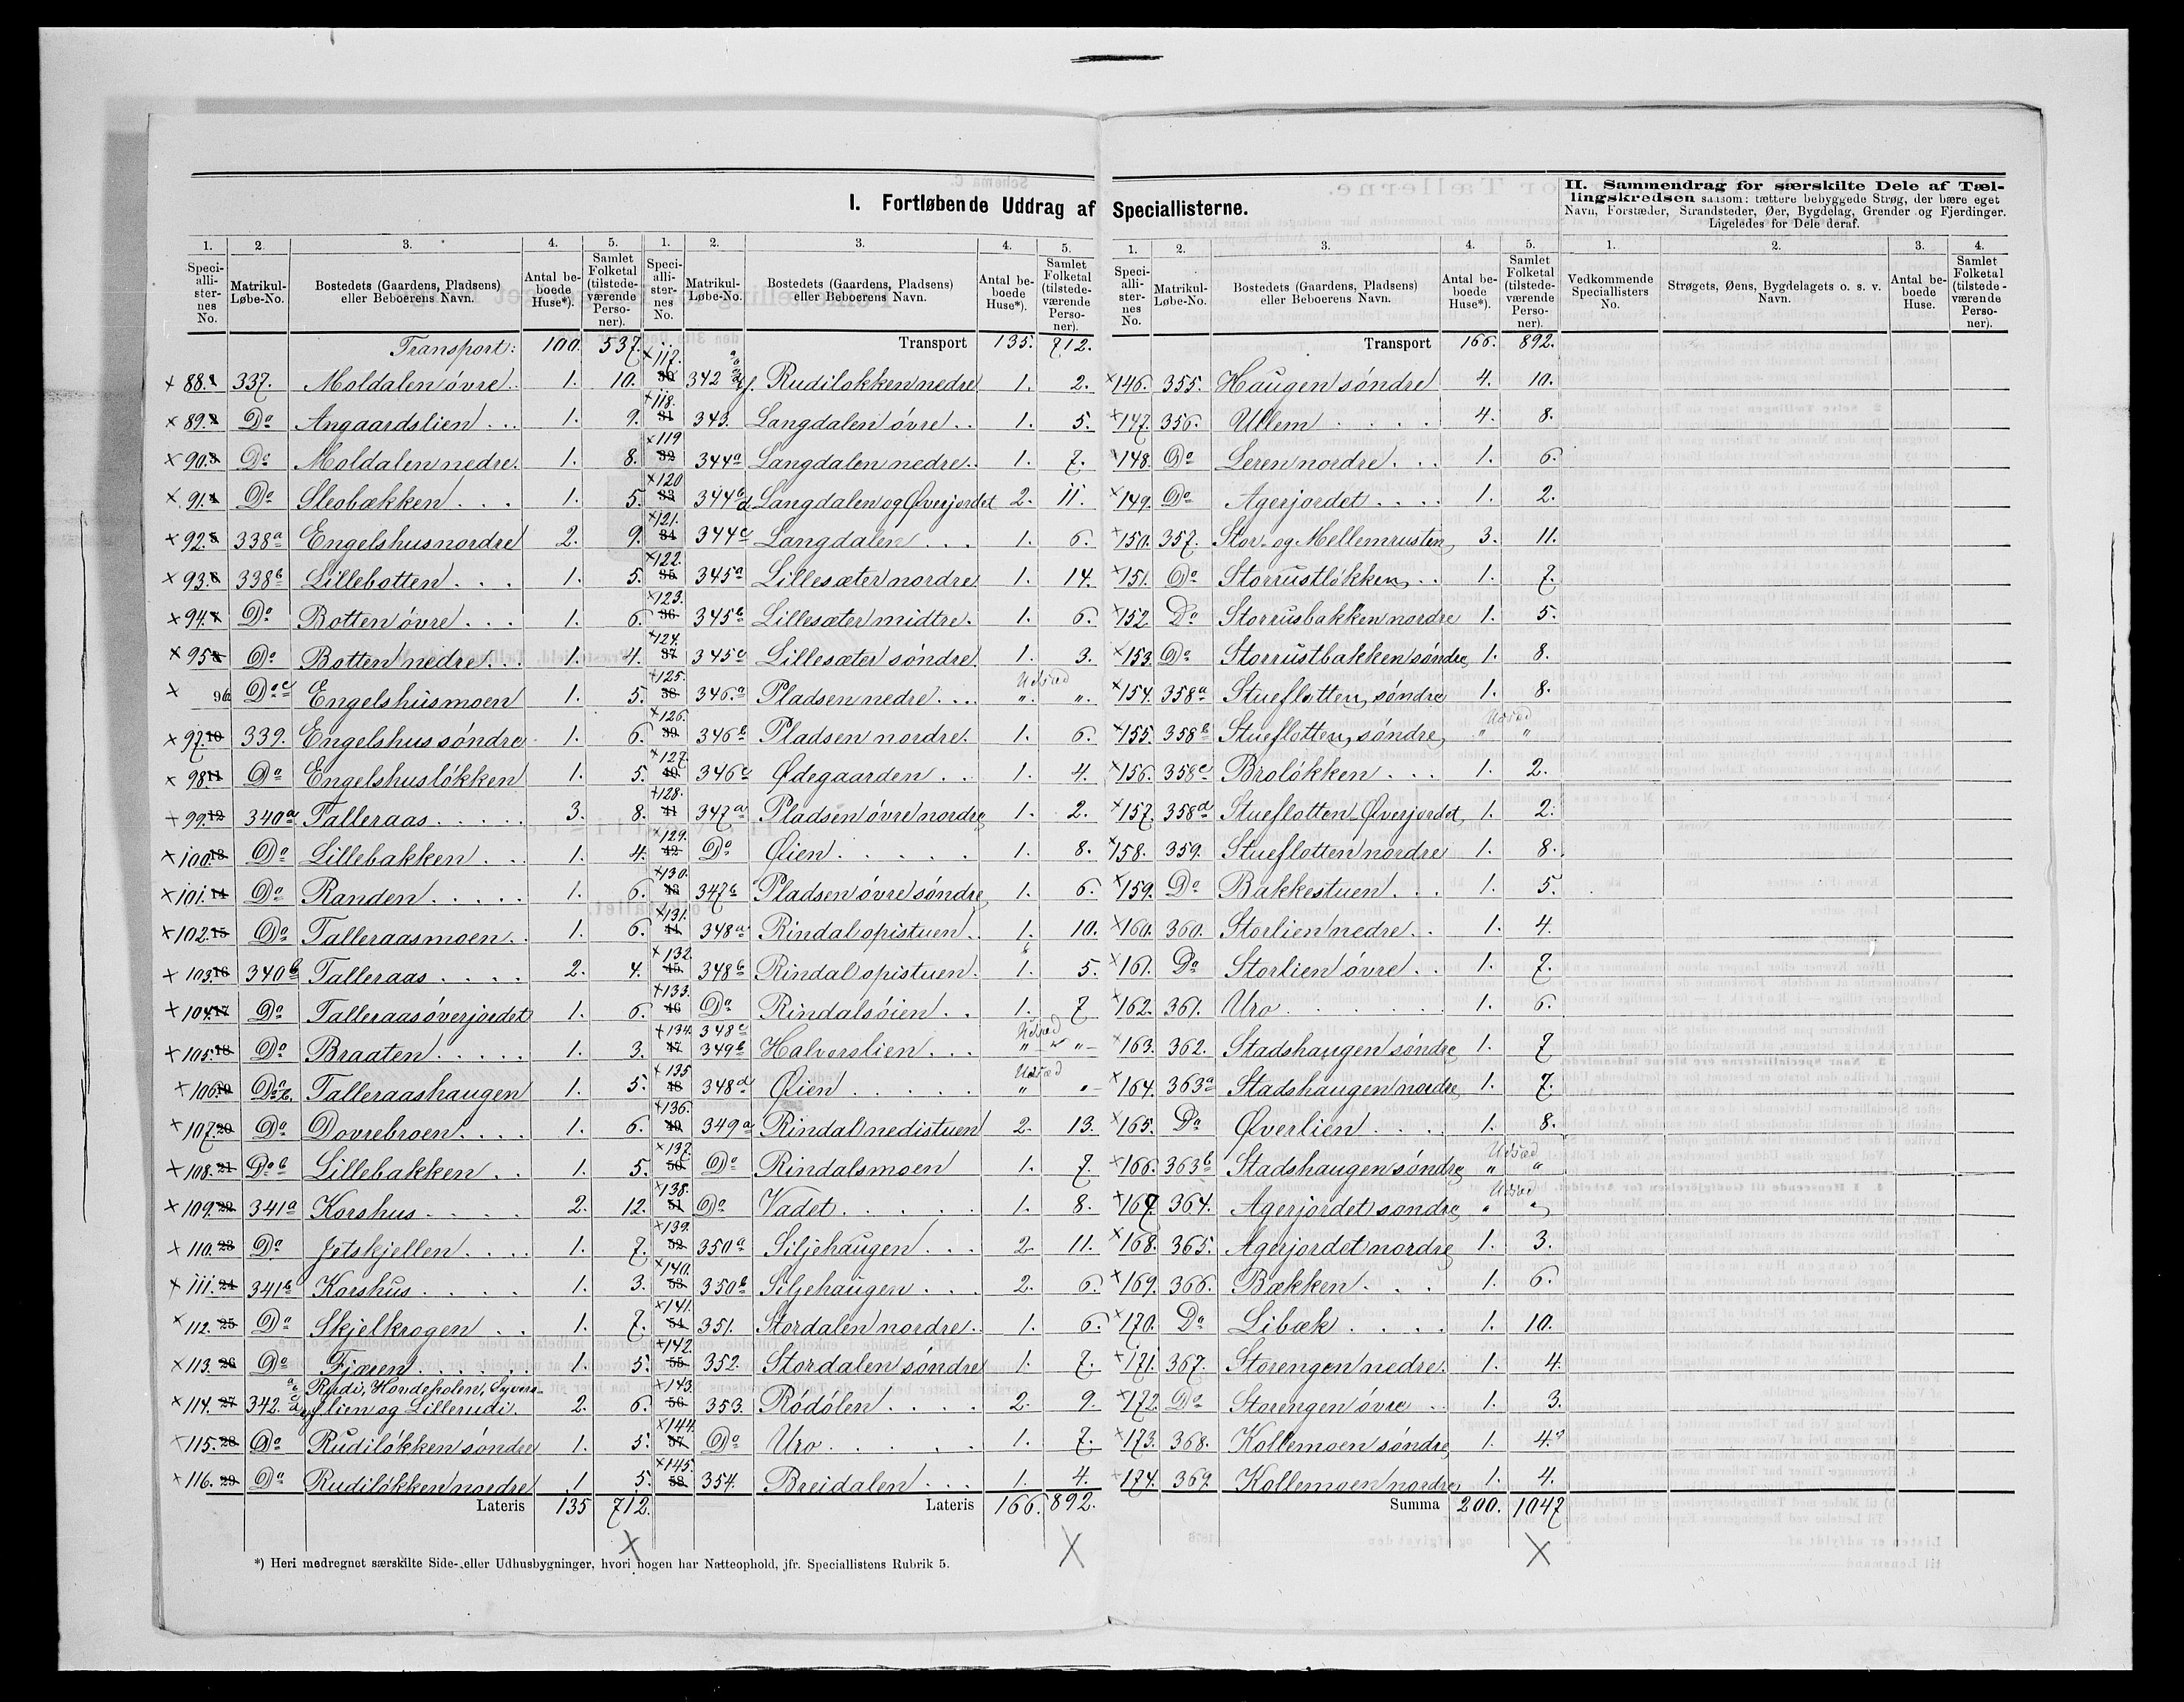 I. Fortløbende Uddrag af Speciallisterne.
II. Sammendrag for særskilte Dele af Tællingskredsen saasom: tættere bebyggede Strøg, der bære eget Navn, Forstæder, Strandsteder, Øer, Bygdelag, Grender og Fjerdinger. Ligeledes for Dele deraf.
1. 2. 3. 4. 5.
Speciallisternes No. Matrikul-Løbe-No. Bostedets (Gaardens, Pladsens) eller Beboerens Navn. Antal beboede Huse*). Samlet Folketal (tilstedeværende Personer).
Transport: 100. 537.
× 88. 1 337. Moldalen øvre. 1. 10.
× 89. 2 Do Angaardslien . . 1. 9.
× 90. 3 Do Moldalen nedre. 1. 8.
× 91. 4 Do Sleobækken . . . 1. 5.
× 92. 5 338a Engelshus nordre 2. 9.
× 93. 6 338b Lillebotten . . . 1. 5.
× 94. 7 Do Botten øvre . . . 1. 6.
× 95 8 Do Botten nedre . . . 1. 4.
× 96 Do c Engelshusmoen 1. 5.
× 97. 10 339. Engelshus søndre 1. 6.
× 98. 11 Do Engelshusløkken 1. 5.
× 99. 12 340a Talleraas . . . . . 3. 8.
× 100. 13 Do Lillebakken . . . 1. 4.
× 101. 14 Do Randen . . . . . 1. 6.
× 102. 15 Do Talleraasmoen . . 1. 6.
× 103. 16 340b Talleraas . . . . 2. 4.
× 104. 17 Do Talleraasøverjordet 1. 6.
× 105. 18 Do Braaten . . . . . 1. 3.
× 106. 19 Do Talleraashaugen 1. 5.
× 107. 20 Do Dovrebroen . . . . 1. 6.
× 108. 21 Do b Lillebakken . . 1. 5.
× 109. 22 341a Korshus . . . . 2. 12.
× 110. 23 Do Jetskjellen . . . . 1. 7.
× 111. 24 341b Korshus . . . . 1. 3.
× 112. 25 Do Skjelkrogen . . 1. 7.
× 113. 26 Do Fjæren . . . . . . 1. 5.
× 114. 27 342. Rudi, Hondeholen, Syverslien og Lillerudi. 2. 6.
× 115. 28 Do Rudiløkken søndre 1. 5.
× 116. 29 Do Rudiløkken nordre 1 5.
Lateris 135 712.
×
1. 2. 3. 4. 5.
Speciallisternes No. Matrikul-Løbe-No. Bostedets (Gaardens, Pladsens) eller Beboerens Navn. Antal beboede Huse*). Samlet Folketal (tilstedeværende Personer).
Transport 135. 712.
× 117. 30 342 f. Rudiløkken nedre 1. 2.
× 118. 31 343. Langdalen øvre . . 1. 5.
× 119 32 344a Langdalen nedre . . 1. 7.
× 120 33 344b d Langdalen og Øverjordet 2. 11.
× 121. 34 344c Langdalen . . . 1. 6.
× 122. 35 345a Lillesæter nordre 1. 14.
× 123. 36 345b Lillesæter midtre. 1. 6.
× 124. 37 345c Lillesæter søndre 1. 3.
× 125. 38 346a Pladsen nedre . . . Udsæd " "
× 126. 39 346b Pladsen nordre. 1. 6.
× 127 40 346c Ødegaarden . . 1. 4.
× 128. 41 347a Pladsen øvre nordre 1. 2.
× 129. 42 Do Øien . . . . . 1. 8.
× 130. 43 347b Pladsen øvre søndre 1. 6.
× 131. 44 348a Rindal opistuen . 1. 10.
× 132. 45 348b Rindal opistuen. 1. 5.
× 133. 46 Do Rindalsøien . . 1. 7
× 134. 47 348c 349b Halverslien . . . Udsæd " "
× 135 48 348d Øien . . . . . Udsæd " "
× 136. 49 349a Rindal nedistuen 2. 13.
× 137. 50 Do Rindalsmoen 1. 7.
× 138. 51 Do Vadet . . . . . 1. 8.
× 139. 52 350a Siljehaugen . . . 2. 11.
× 140. 53 350b Siljehaugen . . . 2. 6.
× 141. 54 351. Stordalen nordre . . 1. 6.
× 142. 55 352. Stordalen søndre 1. 7.
× 143. 56 353. Rødølen . . . . 2. 9.
× 144. 57 Do Uro . . . . . . 1. 7.
× 145. 58 354. Breidalen . . . 1. 4.
Lateris 166. 892.
×
1. 2. 3. 4. 5.
Speciallisternes No. Matrikul-Løbe-No. Bostedets (Gaardens, Pladsens) eller Beboerens Navn. Antal beboede Huse*). Samlet Folketal (tilstedeværende Personer).
Transport 166. 892.
× 146. 355. Haugen søndre 4. 10.
× 147. 356. Ullem . . . . 4. 8.
× 148. Do Leren nordre . . . 1. 6.
× 149. Do Agerjordet . . . . 1. 2.
× 150. 357. Stor- og Mellemrusten 3. 11.
× 151. Do Storrustløkken . . 1. 7.
× 152 Do Storrusbakken nordre 1. 5.
× 153. Do Storrustbakken søndre 1. 8.
× 154. 358a Stueflotten søndre 1. 8.
× 155. 358b Stueflotten søndre Udsæd " "
× 156. 358c Broløkken . . . 1. 2.
× 157. 358d Stueflotten Øverjordet 1. 2.
× 158. 359. Stueflotten nordre 1. 8.
× 159. Do Bakkestuen . . . 1. 5.
× 160. 360. Storlien nedre . . 1. 4.
× 161. Do Storlien øvre . . 1. 7.
× 162. 361. Uro . . . . . . 1. 6.
× 163. 362. Stadshaugen søndre 1. 7
× 164. 363a Stadshaugen nordre 1. 7.
× 165. Do Øverlien . . . . 1. 8.
× 166. 363b Stadshaugen søndre Udsæd " "
× 167. 364. Agerjordet søndre Udsæd " "
× 168. 365. Agerjordet nordre 1. 3.
× 169. 366. Bækken . . . 1. 6.
× 170. Do Libæk . . . . 1. 10.
× 171. 367. Storengen nedre. 1. 4.
× 172. Do Storengen øvre . . 1. 3.
× 173. 368. Kollemoen søndre 1. 4.
× 174. 369. Kollemoen nordre 1. 4.
Summa 200. 1047
×
1. 2. 3. 4.
Vedkommende Speciallisters No. Strøgets, Øens, Bygdelagets o. s. v. Navn. Antal beboede Huse. Samlet Folketal (tilstedeværende Personer).
*) Heri medregnet særskilte Side- eller Udhusbygninger, hvori nogen har Natteophold, jfr. Speciallistens Rubrik 5.